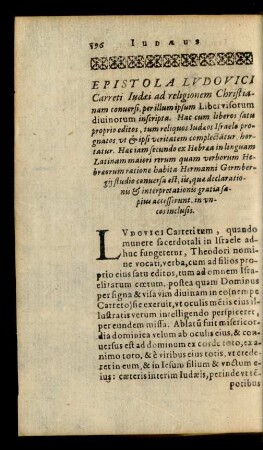 596 IUDÆUS
EPISTOLA LVDOVICI
Carreti Iudæi ad religionem Christia-
nam conuersi, per illum ipsum Liber visorum
diuinorum inscripta. Hac cum liberos satu
proprio editos, tum reliquos Iudæos Israele pro-
gnatos vt & ipsi veritatem complectãtur, hor-
tatur. Hac iam secundo ex Hebræa in linguam
Latinam maiori rerum quam verborum He-
bræorum ratione habita Hermanni Germber-
gij studio conuersa est, ijs, quæ declaratio-
nis & interpretationis gratia sæ-
pius accesserunt, in vn-
cos inclusis.
LVDOVICI Carreti tum, quando
munere sacerdotali in Israele ad-
huc fungeretur, Theodori nomi-
ne vocati, verba, cum ad filios pro-
prio eius satu editos, tum ad omnem Isra-
elitarum cœtum. postea quam Dominus
per signa & visa vim diuinam in eo (nempe
Carreto) sic exeruit, vt oculi mẽtis eius il-
lustratis verum intelligendo perspiceret,
per eundem missa. Ablatũ fuit misericor-
dia dominica velum ab oculis eius, & con-
uersus est ad dominum ex corde toto, ex a-
nimo toto, & è viribus eius totis, vt crede-
ret in eum, & in Iesum filium & vnctum e-
ius: cæteris interim Iudæis, perinde vt tẽ-
poribus